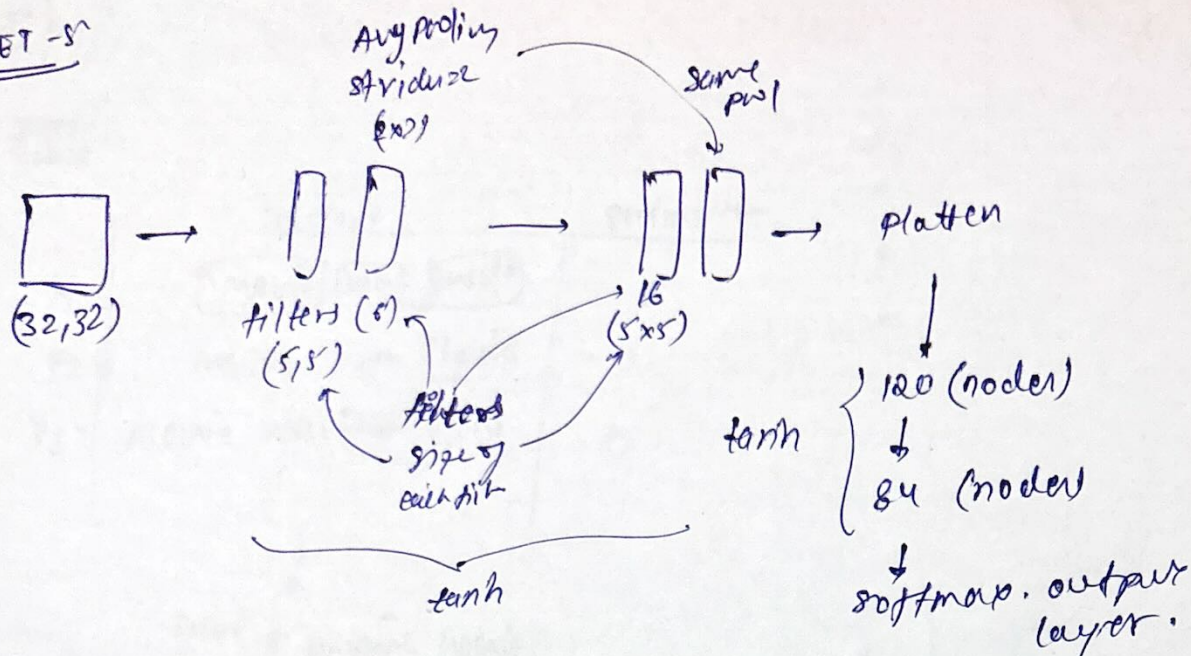 ET-5
Avg pooling
stride=2
(2x2)
same
pool
(32,32)
filters (6)
(5,5)
16
(5x5)
filters
size of
each
tanh
Flatten
120 (nodes)
tanh
84 (nodes)
softmax. output
layer.